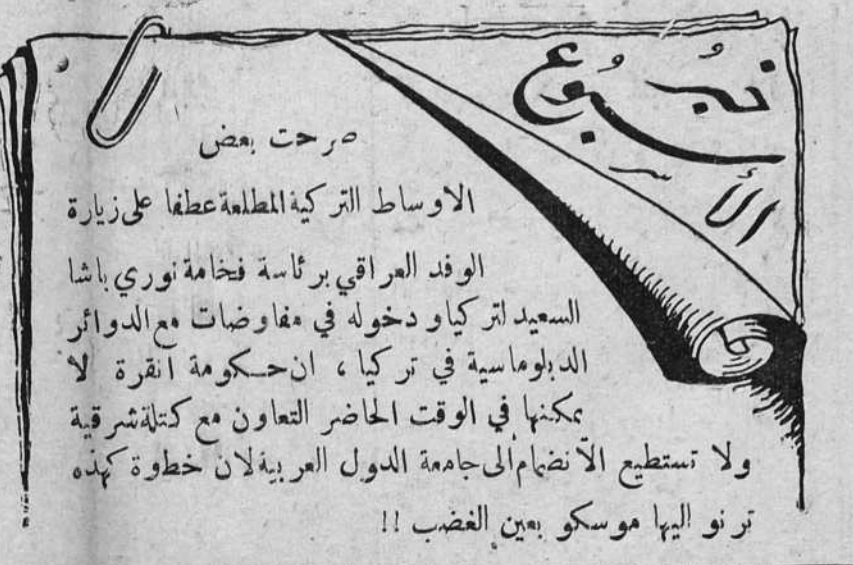 نبُؤع
الأسبُوع
صرحت بعض
الاوساط التركية المطلعة عطفا على زيارة
الوفد العراقي برئاسة فخامة نوري باشا
السعيد لتركيا ودخوله في مفاوضات مع الدوائر
الدبلوماسية في تركيا ، ان حكومة انقرة لا
يمكنها في الوقت الحاضر التعاون مع كتلة شرقية
ولا تستطيع الانضمام الى جامعة الدول العربية لان خطوة كهذه
ترنو اليها موسكو بعين الغضب !!